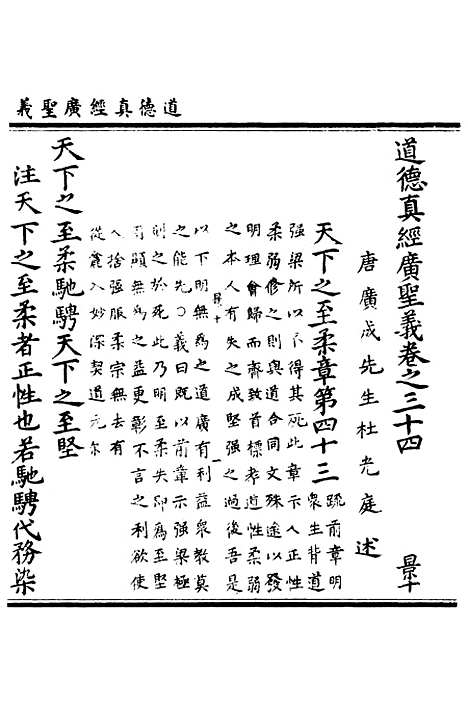 道德真經廣聖義
道德真經廣聖義卷之三十四
景十
唐廣成先生杜光庭述
天下之至柔章第四十三
疏前章明
衆生背道
强梁所以不得其死此章示人正性
柔弱修之則與道合同文殊途以發
明理會歸而齊致首標考近性柔弱
之本人有失之成堅强之過後吾是
以下明無爲之道廣有利益衆教莫
之能先○義曰旣以前章示强梁極
則之於死此乃明至柔失即爲至堅
可顯無爲之益更彰不言之利欲使
人捨强服柔宗無去有
從麁入妙深契道元尔
天下之至柔馳騁天下之至堅
注天下之至柔者正性也若馳騁代務染